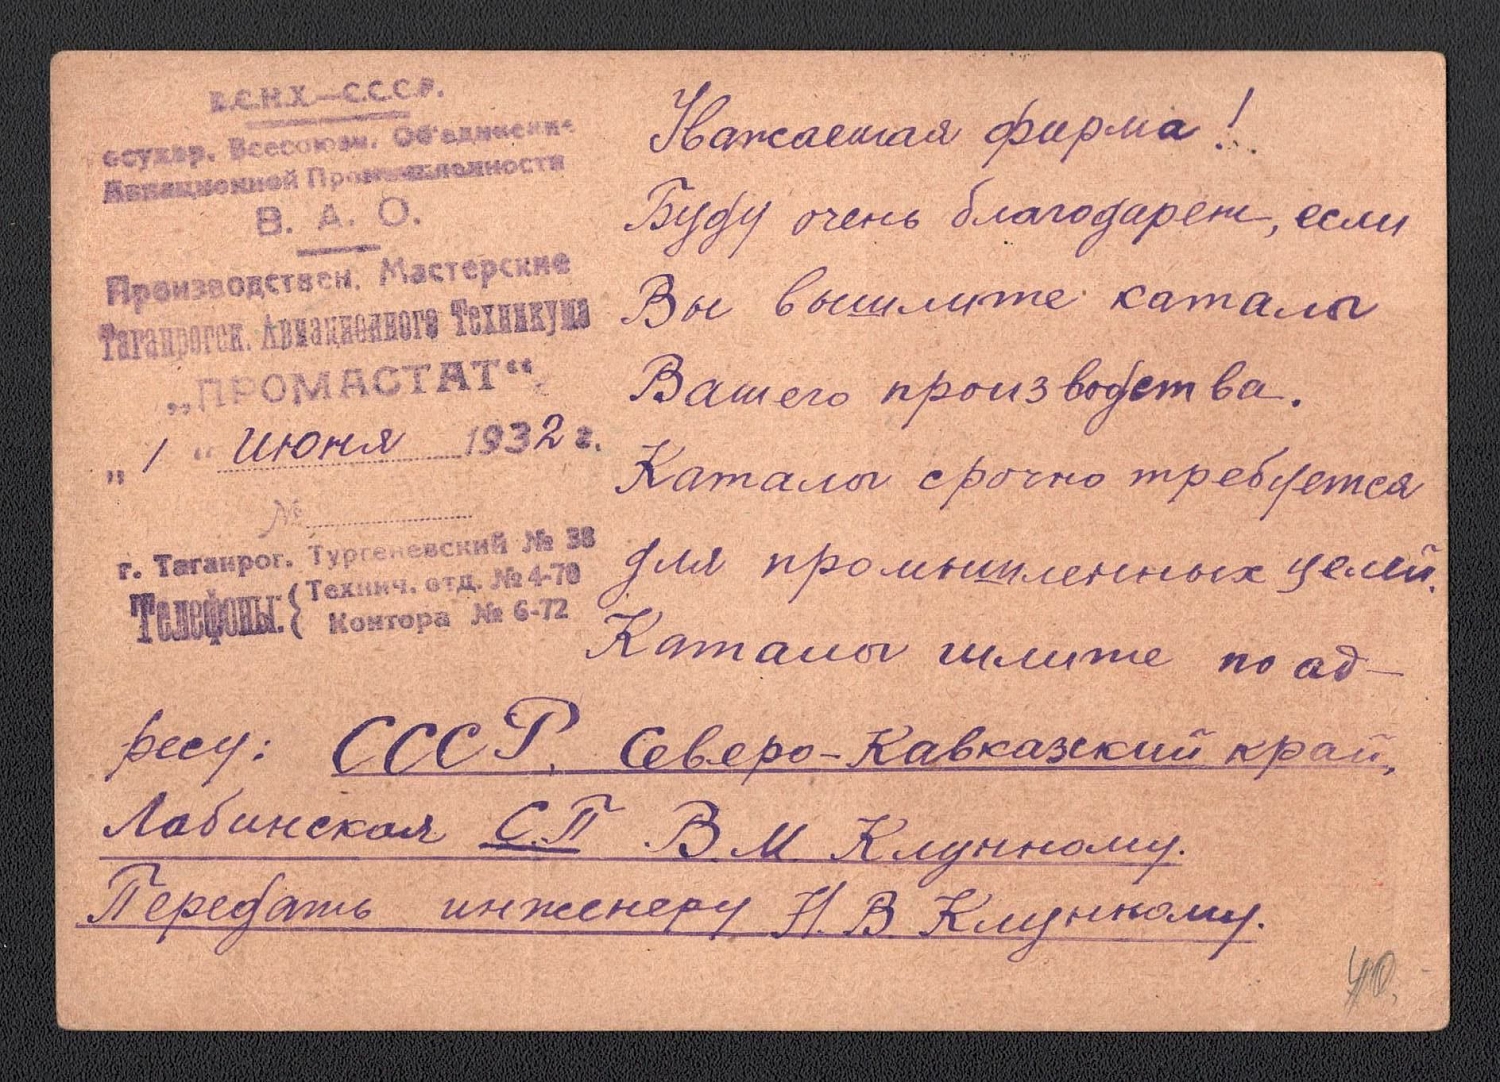 В.С.Н.Х.—С.С.С.Р.
осудар. Всесоюзн. Об'единение
Авиационной Промышленности
В. А. О.
Производствен. Мастерские
Таганрогск. Авиационного Техникума
„ПРОМАСТАТ“
„ 1 “ июня 1932 г.
№
г. Таганрог. Тургеневский № 38
Телефоны: { Технич. отд. № 4-70
Контора № 6-72
Уважаемая фирма!
Буду очень благодарен, если
Вы вышлите каталог
Вашего производства.
Каталог срочно требуется
для промышленных целей.
Каталог шлите по ад-
ресу: СССР, Северо-Кавказский край,
Лабинская С.П В. М. Клунному.
Передать инженеру Н. В. Клунному.
40.